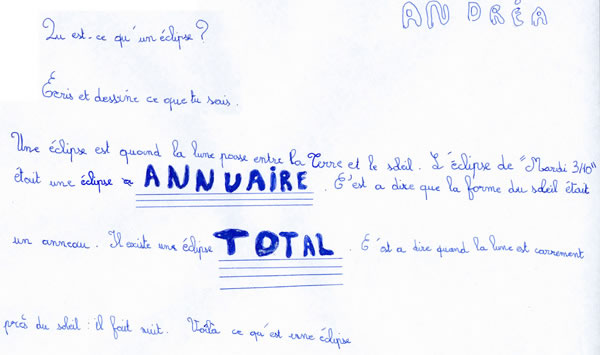 ANDRÉA
Qu est-ce qu'un éclipse ?
Écris et dessine ce que tu sais.
Une éclipse est quand la lune passe entre la Terre et le soleil. L'éclipse de "Mardi 3/10"
était une éclipse ANNUAIRE. C'est a dire que la forme du soleil était
un anneau. Il existe une éclipse TOTAL. C'est a dire quand la lune est carrement
près du soleil : il fait nuit. Voilà ce qu'est une éclipse